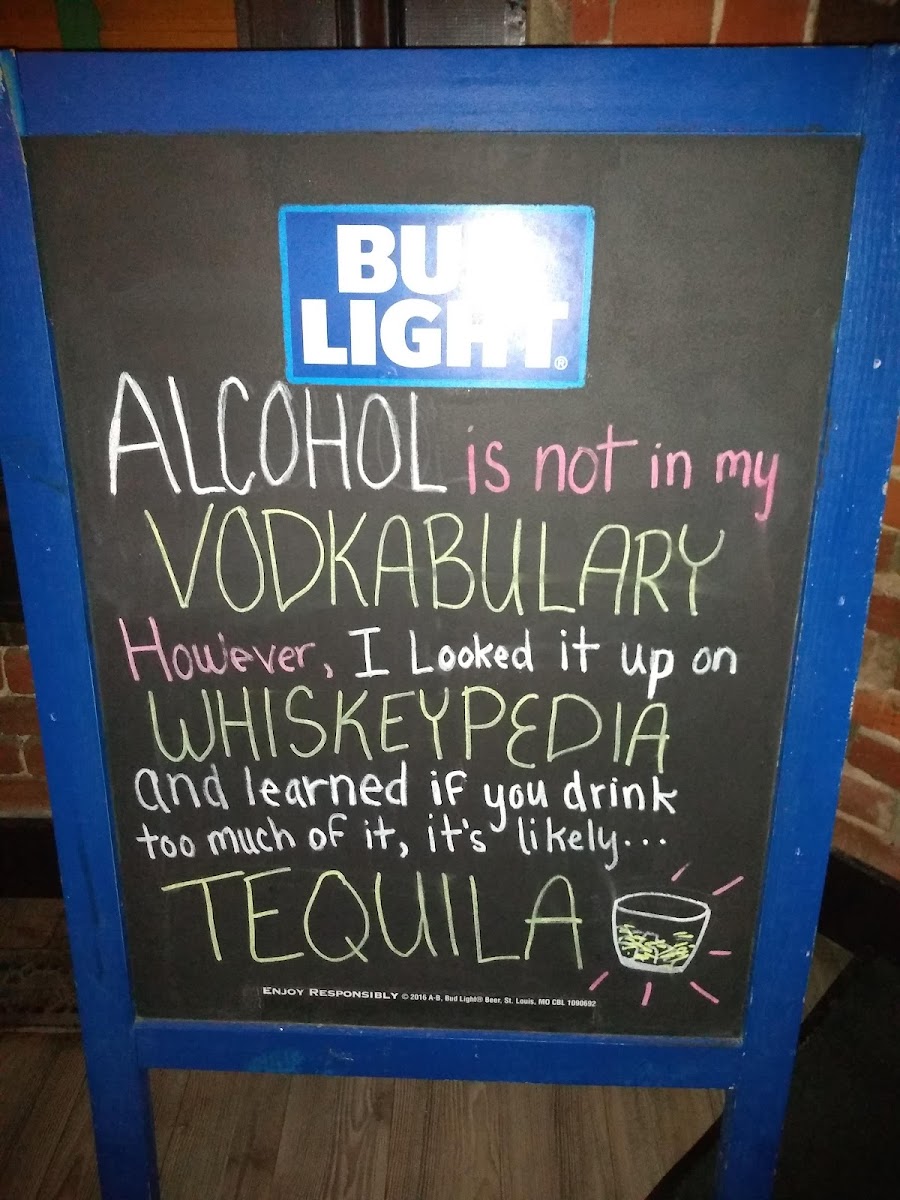 BUD
LIGHT®
ALCOHOL is not in my
VODKABULARY
However, I Looked it up on
WHISKEYPEDIA
and learned if you drink
too much of it, it's likely...
TEQUILA
ENJOY RESPONSIBLY © 2016 A-B, Bud Light® Beer, St. Louis, MO CBL 1090692